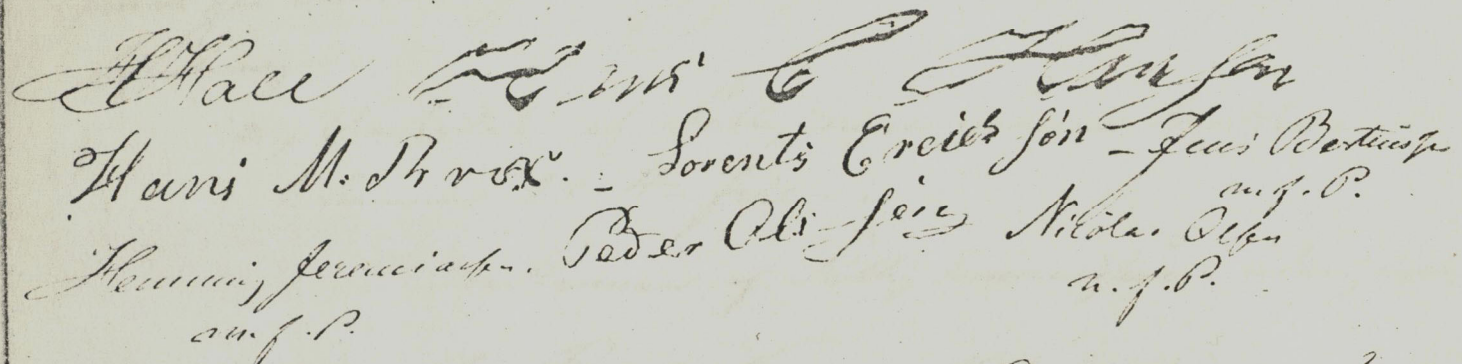 HHall Hans C Hansen
Hans M. Brox. - Lorents Ereichsøn - Jens Bertheusen
m. f. P.
Hemming Jeremiassen. Peder Ols-sen Nicolai Olsen
m. f. P.
m. f. P.